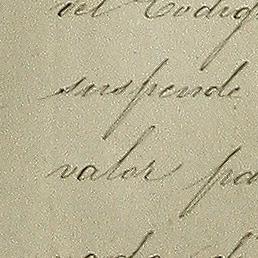 del Codig
suspende
valor pa